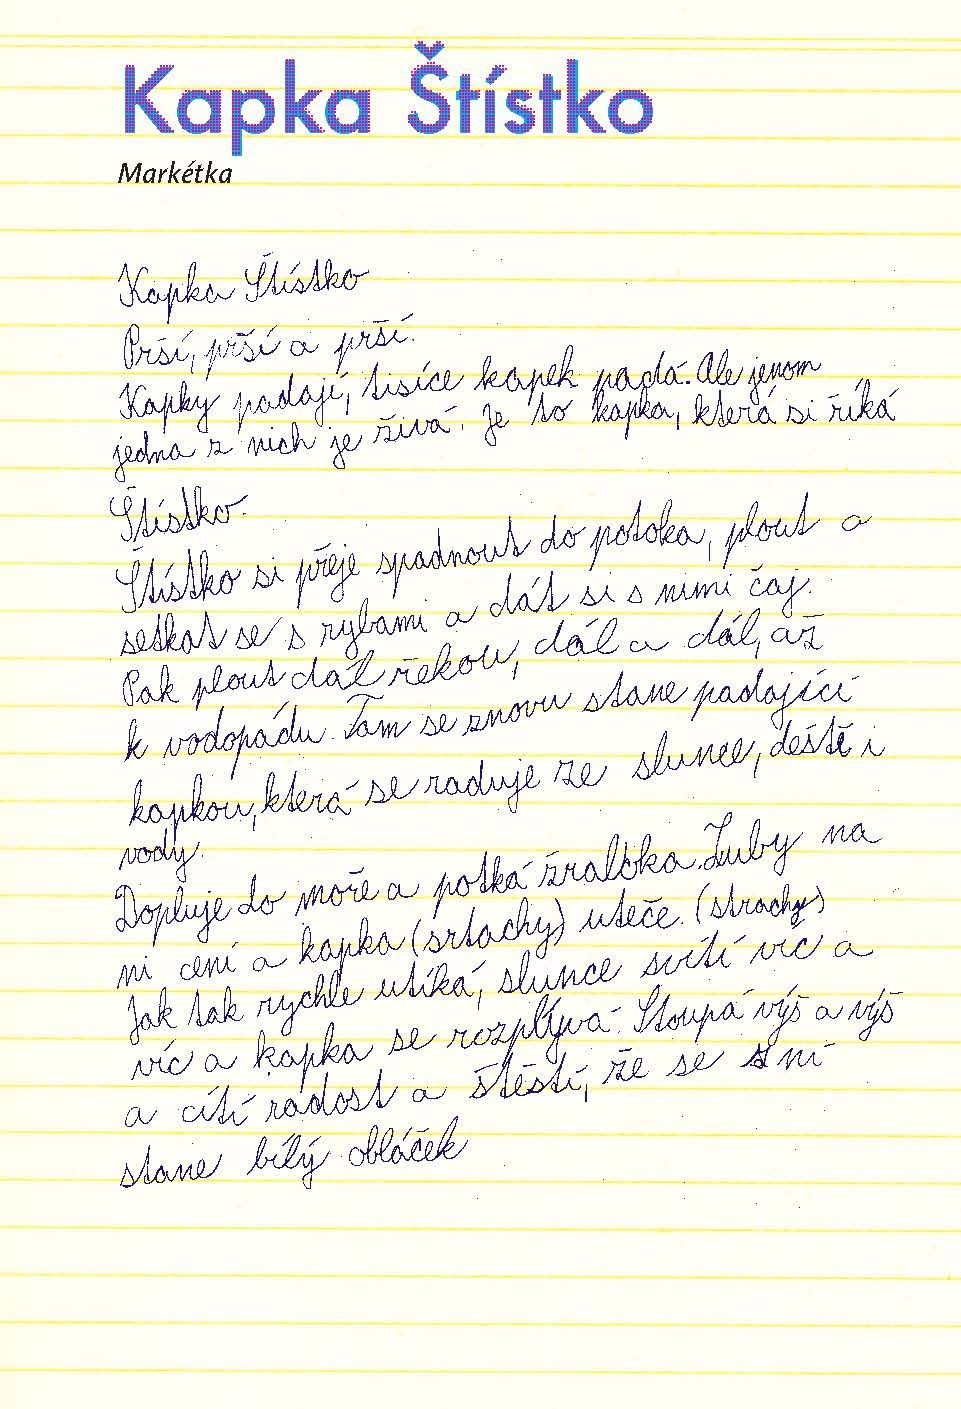 Kapka Štístko
Markétka
Kapka Štístko
Prší, prší a prší.
Kapky padají, tisíce kapek padá. Ale jenom
jedna z nich je živá. Je to kapka, která si říká
Štístko.
Štístko si přeje spadnout do potoka, plout a
setkat se s rybami a dát si s nimi čaj.
Pak plout dál řekou, dál a dál, až
k vodopádu. Tam se znovu stane padající
kapkou, která se raduje ze slunce, deště i
vody.
Dopluje do moře a potká žraloka. Zuby na
ni cení a kapka (srtachy) uteče. (strachy)
Jak tak rychle utíká, slunce svítí víc a
víc a kapka se rozplývá. Stoupá výš a výš
a cítí radost a štěstí, že se z ní
stane bílý obláček